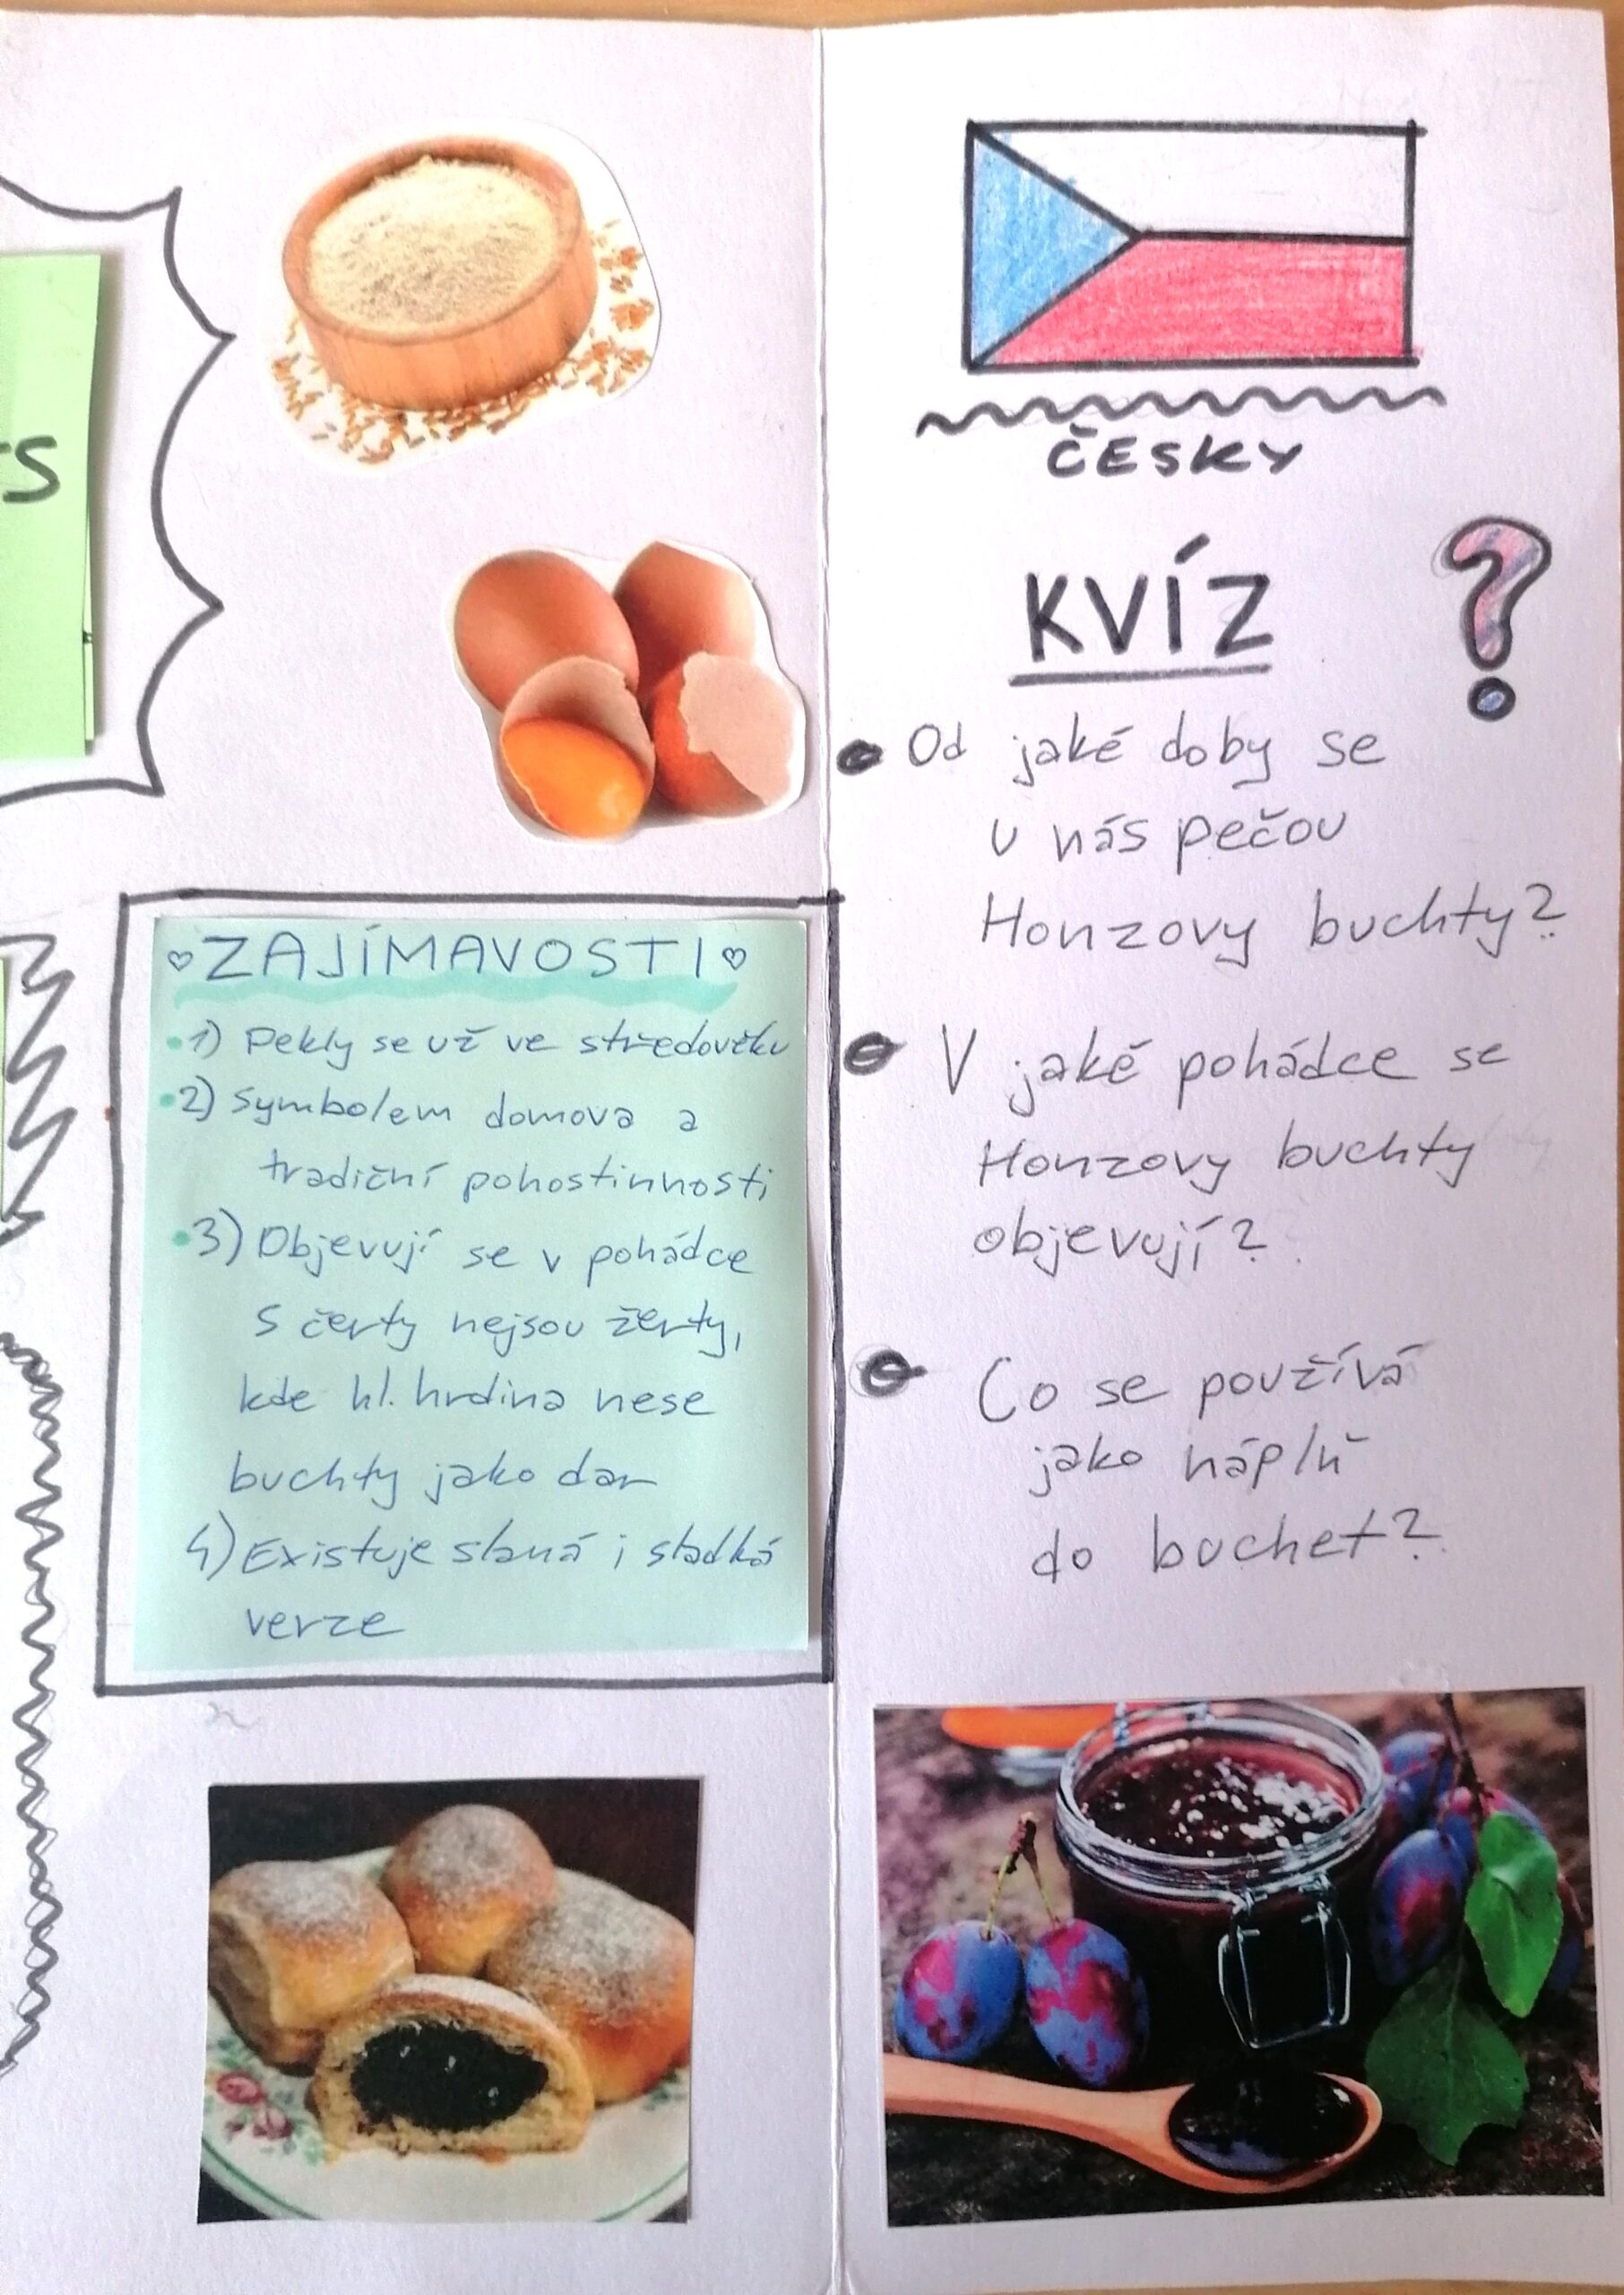 TS
ZAJÍMAVOSTI
1) Pekly se už ve středověku
2) Symbolem domova a
tradiční pohostinnosti
3) Objevují se v pohádce
S čerty nejsou žerty,
kde hl. hrdina nese
buchty jako dar
4) Existuje slaná i sladká
verze
ČESKY
KVÍZ ?
Od jaké doby se
u nás pečou
Honzovy buchty?
V jaké pohádce se
Honzovy buchty
objevují?
Co se používá
jako náplň
do buchet?